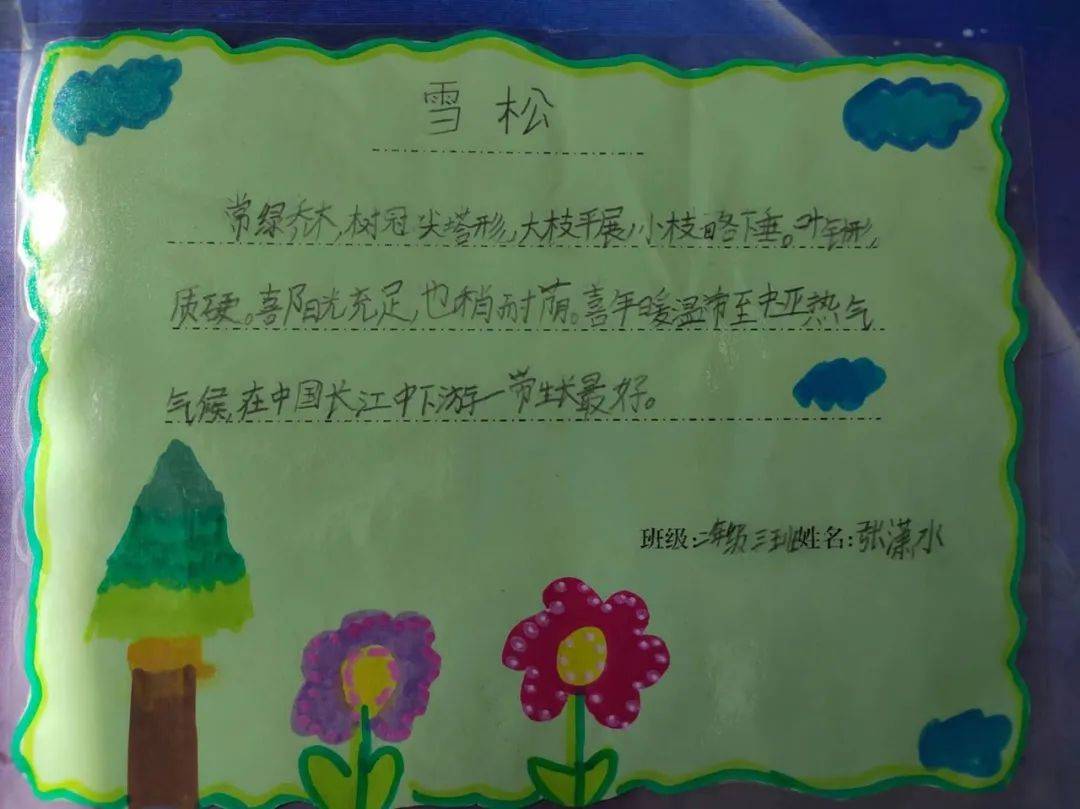 雪松
常绿乔木,树冠尖塔形,大枝平展,小枝略下垂。叶针形,
质硬。喜阳光充足,也稍耐荫。喜年暖温带至中亚热气
气候,在中国长江中下游一带生长最好。
班级:二年级三班姓名:张潇水